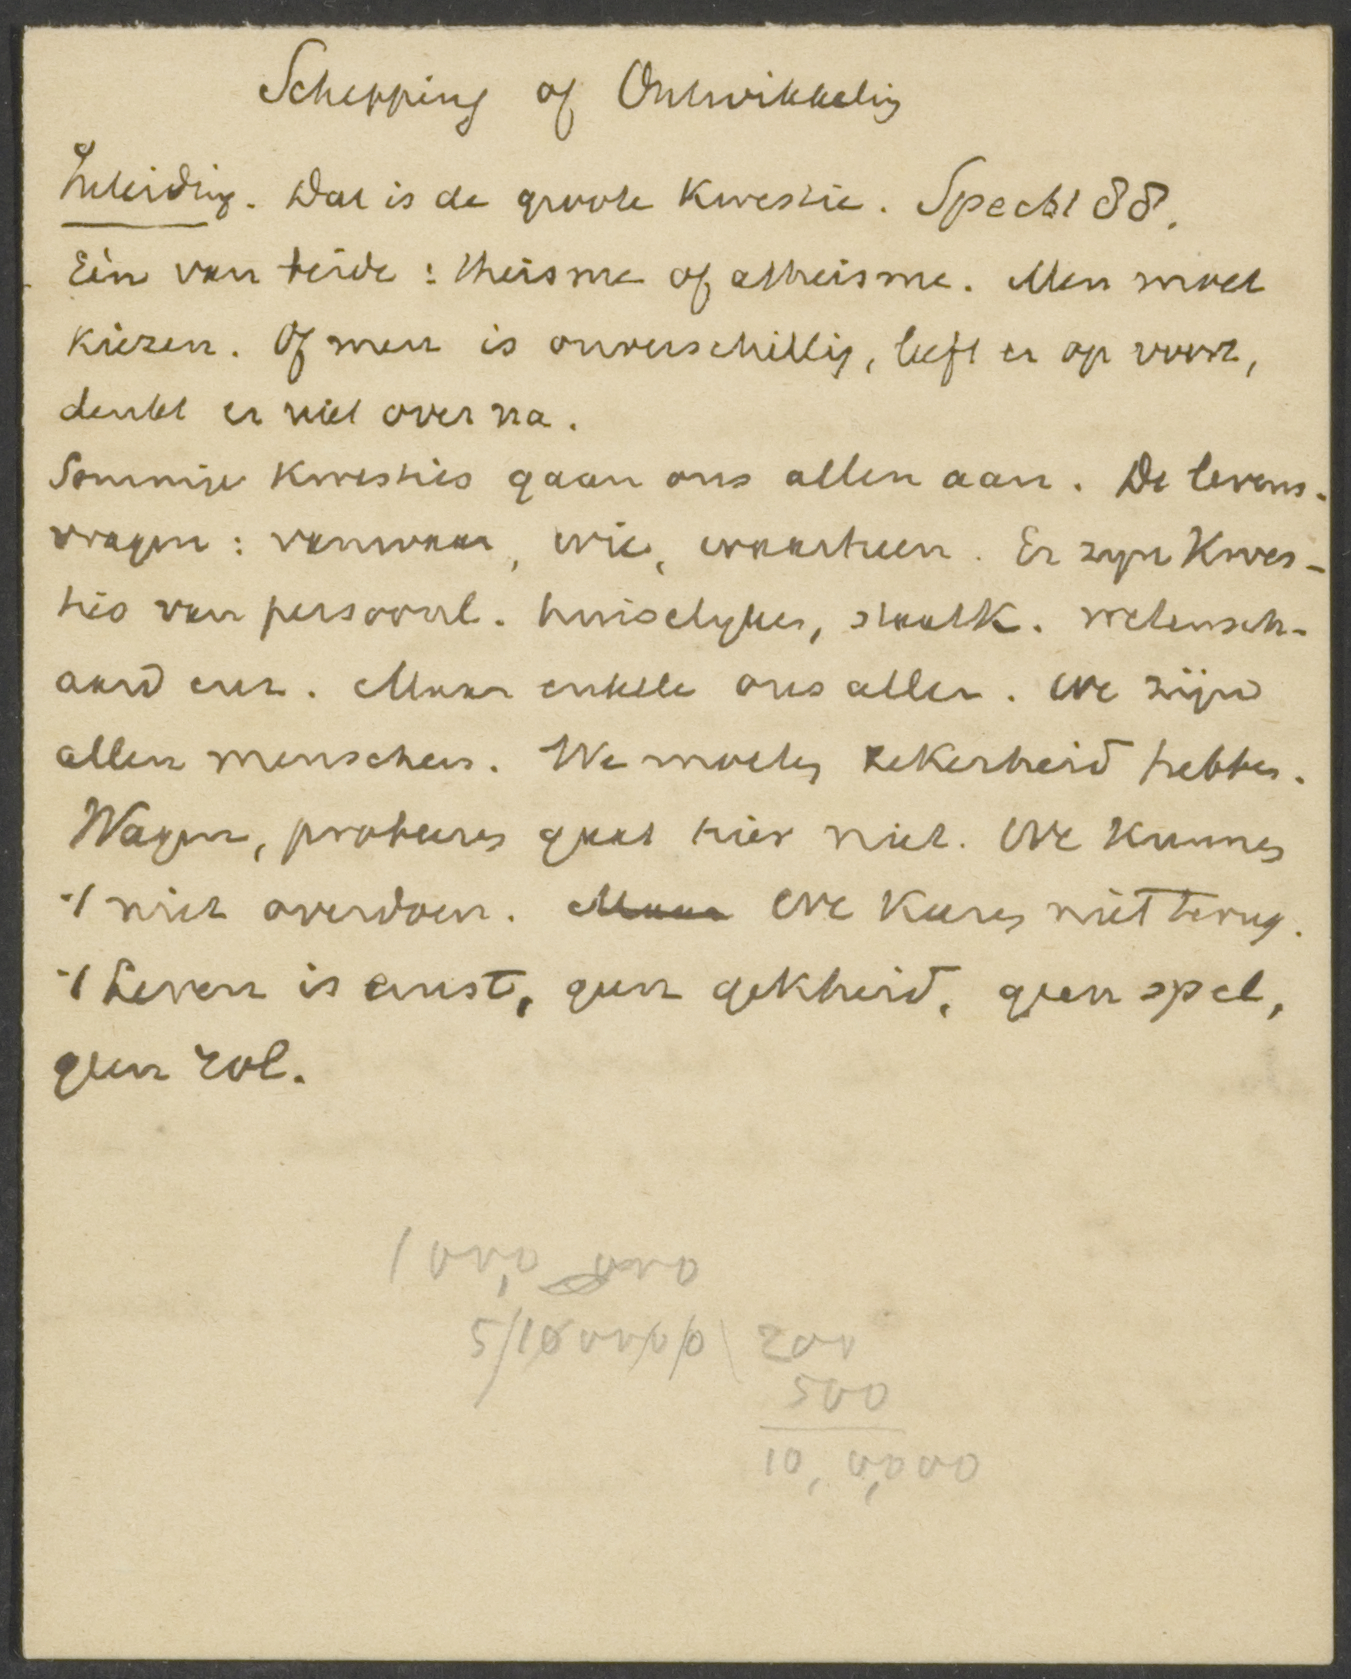 Schepping of Ontwikkeling
Inleiding. Dat is de groote kwestie. Specht 88.
Eén van beide : theisme of atheisme. Men moet
kiezen. Of men is onverschillig, leeft er op voort,
denkt er niet over na.
Sommige kwesties gaan ons allen aan. De levens-
vragen : vanwaar, wie, waarheen. Er zijn kwes-
ties van persoonl. huiselijken, staatk. wetensch-
aard enz. Maar enkele ons allen. We zijn
allen menschen. We moeten zekerheid hebben.
Wagen, probeeren gaat hier niet. We kunnen
't niet overdoen. Maar We keeren niet terug.
't Leven is ernst, geen gekheid, geen spel,
geen rol.
5/100000/5 200
500
10,0,000